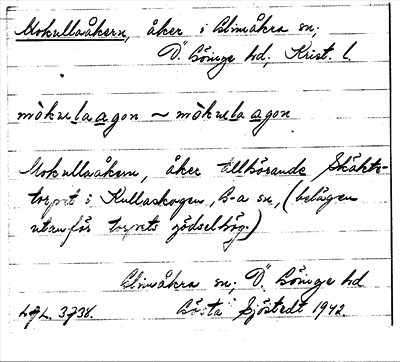 Mokullaåkern, åker i Glimåkra sn;
Ö. Göinge hd; Krist. l.
mòkuelaagon ~ mòkuelaagon
Mokullaåkern, åker tillhörande Skåkts-
torpet i Kullaskogen, G-a sn, (belägen
utanför torpets gödselhög.)
Glimåkra sn; Ö. Göinge hd
LgL. 3738. Gösta Sjöstedt 1942